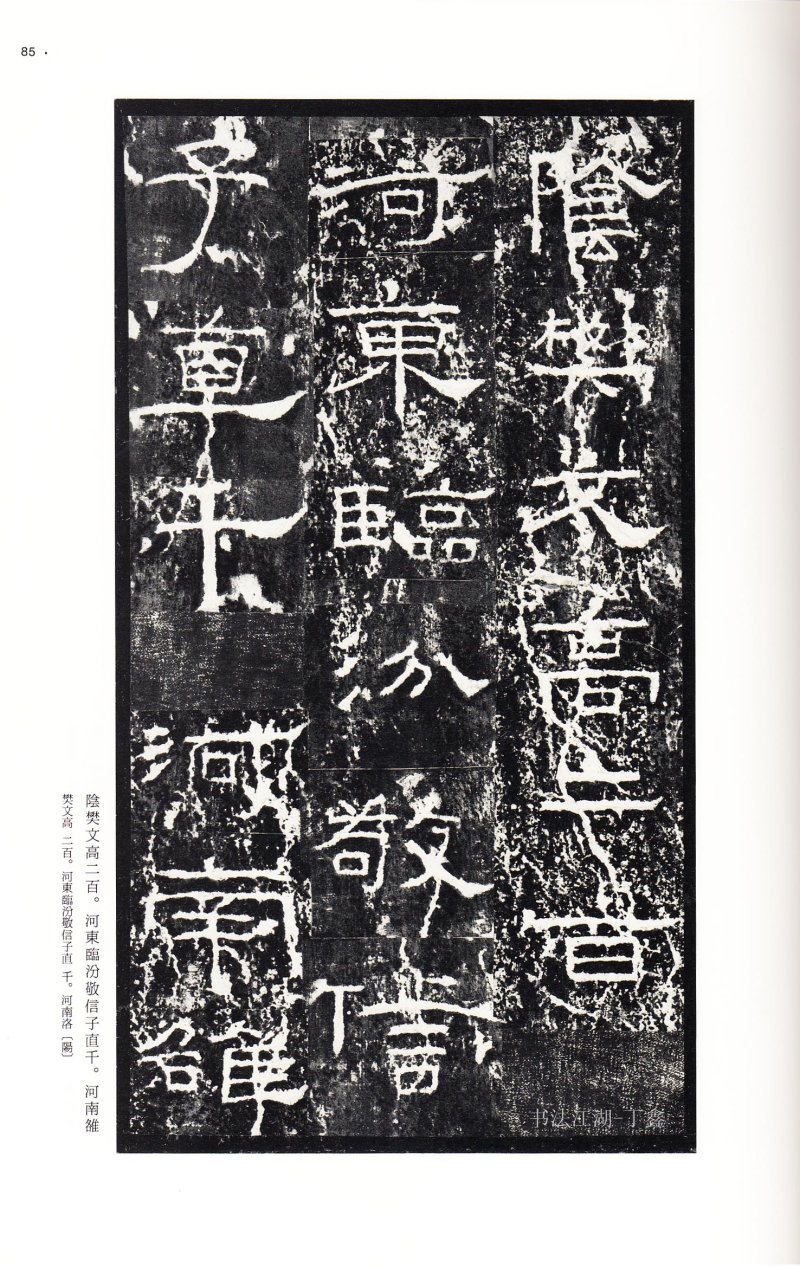 85 ·
陰樊文高二百
河東臨汾敬信
子直千 河南雒
陰樊文高二百。河東臨汾敬信子直千。河南雒
樊文高 二百。河東臨汾敬信子直 千。河南洛〔陽〕
书法江湖-丁鑫